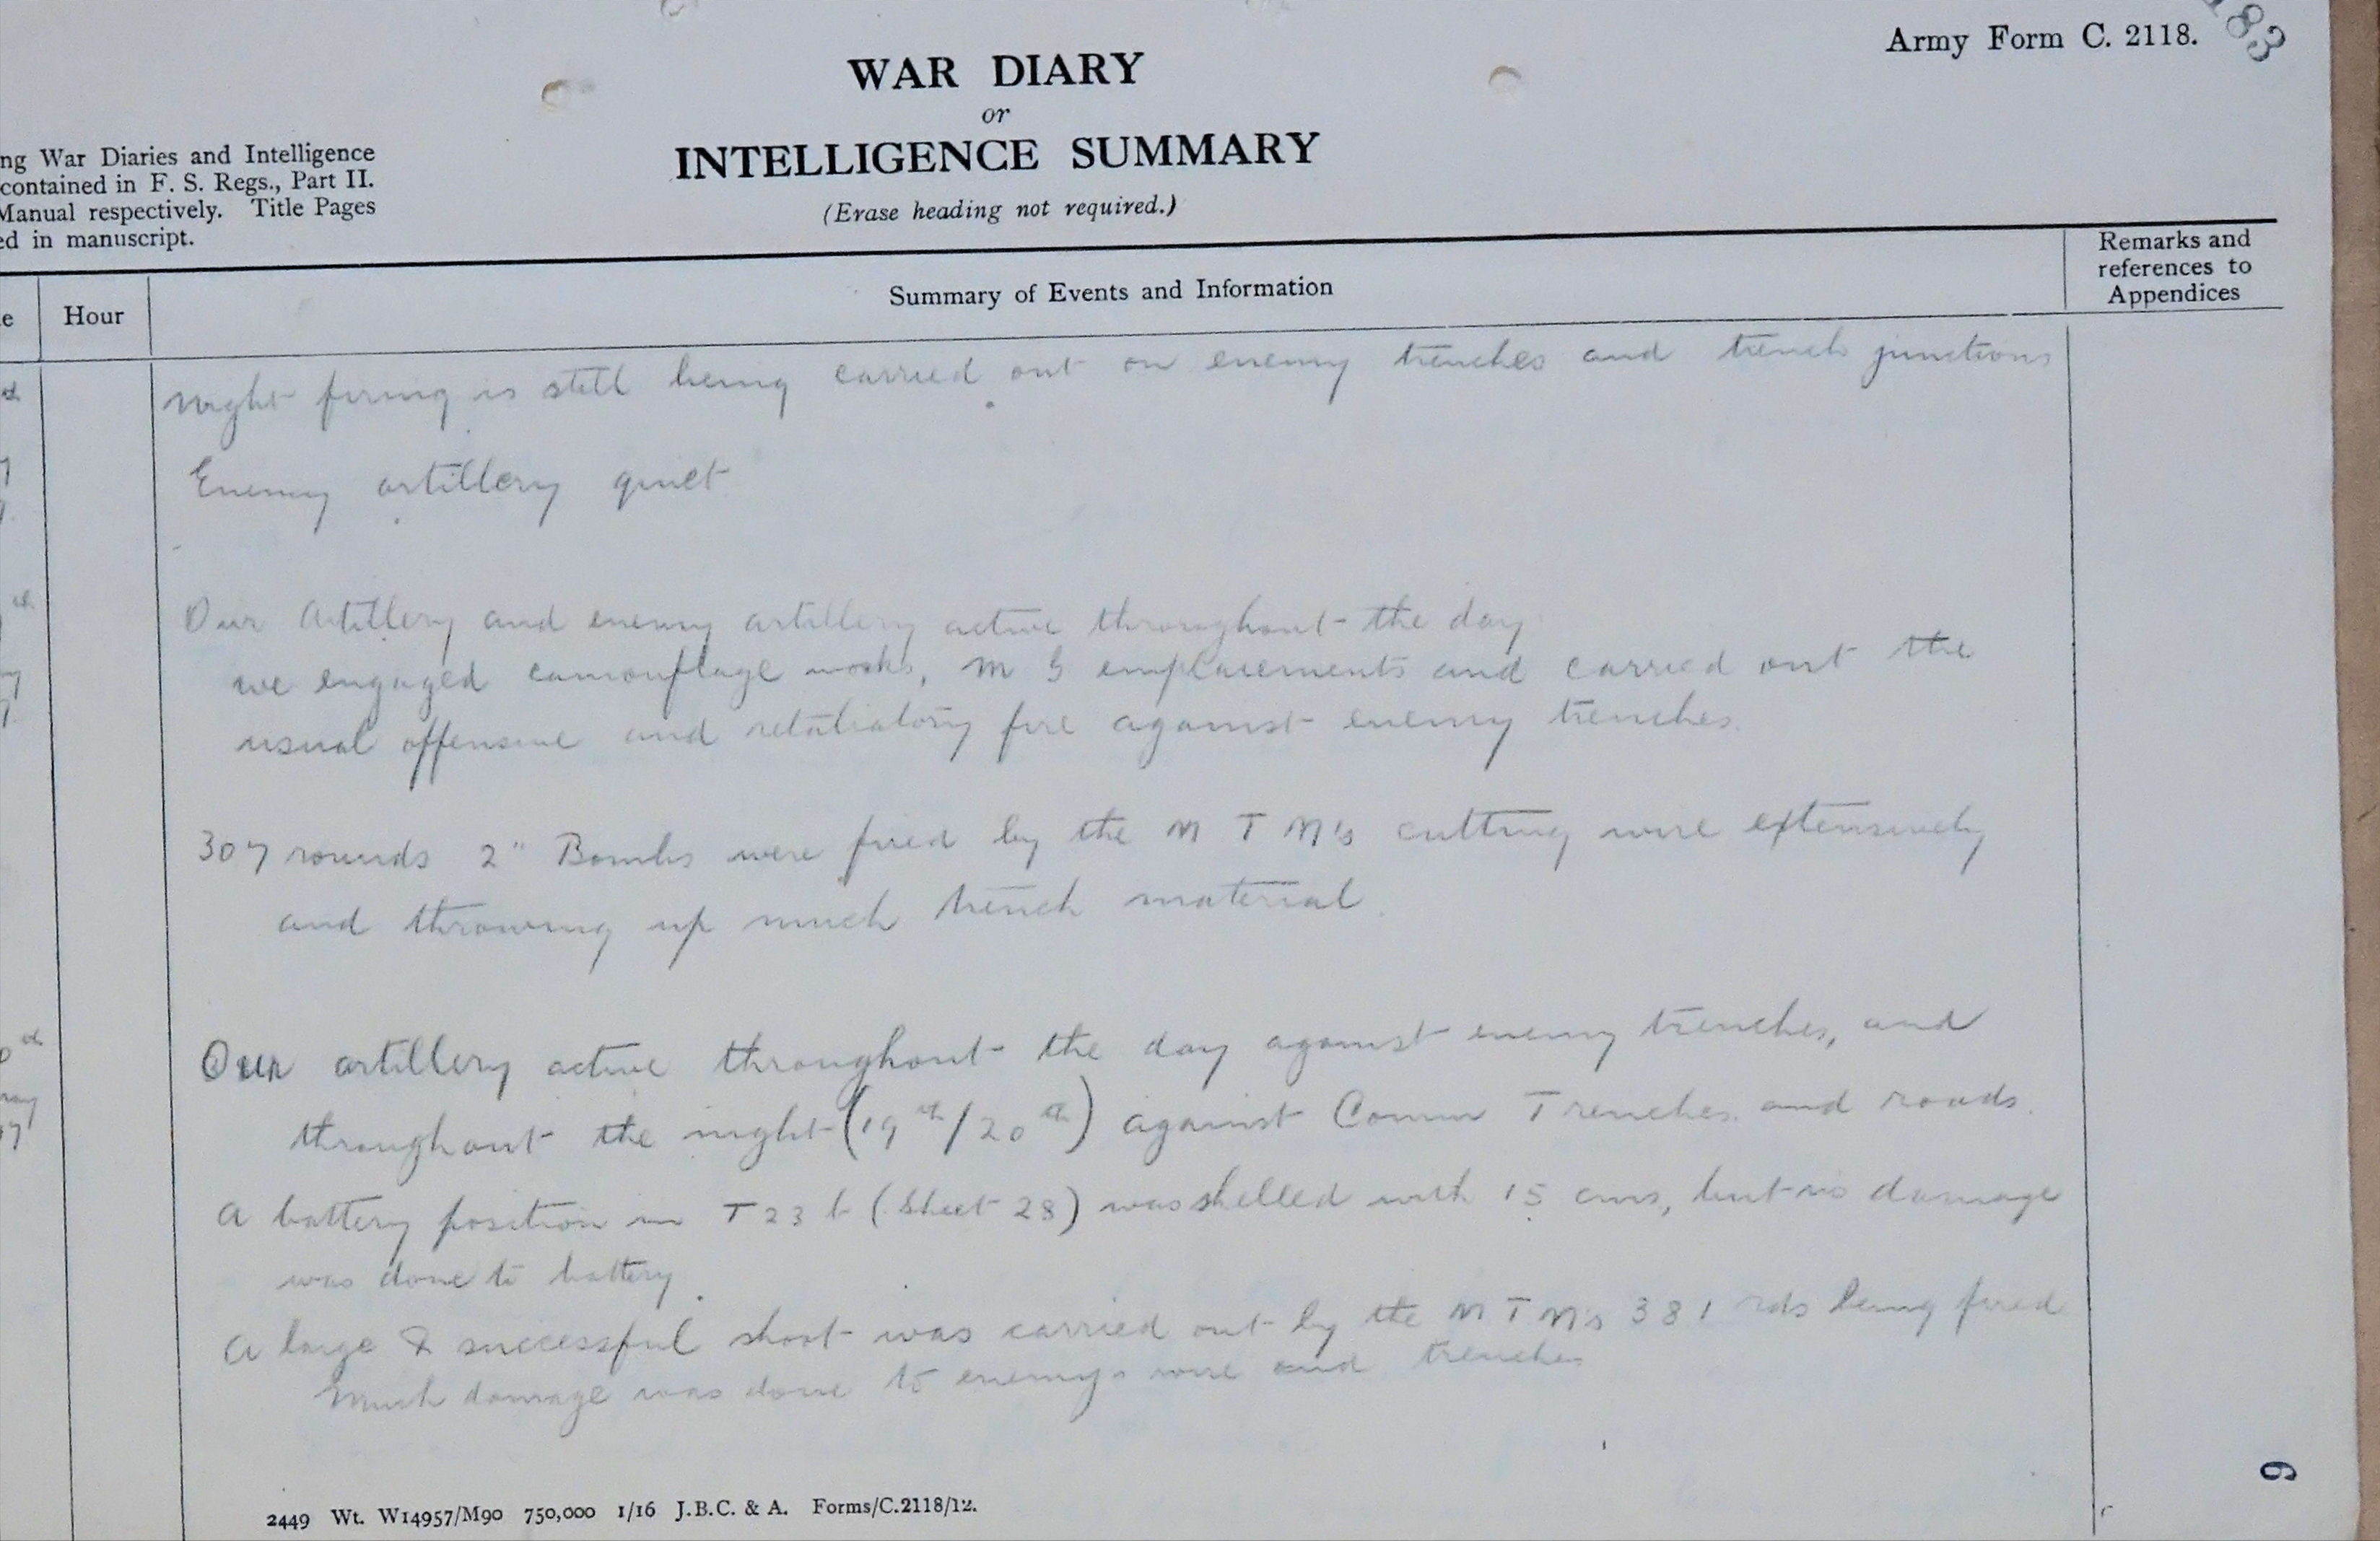 Army Form C. 2118.
183
WAR DIARY
or
INTELLIGENCE SUMMARY
(Erase heading not required.)
ng War Diaries and Intelligence
contained in F. S. Regs., Part II.
Manual respectively. Title Pages
ed in manuscript.
e
Hour
Summary of Events and Information
Remarks and
references to
Appendices
Night firing is still being carried out on enemy trenches and trench junctions
Enemy artillery quiet
Our Artillery and enemy artillery active throughout the day
we engaged camouflage works, M G emplacements and carried out the
usual offensive and retaliatory fire against enemy trenches.
307 rounds 2" Bombs were fired by the M T M's cutting wire extensively
and throwing up much trench material.
Our artillery active throughout the day against enemy trenches, and
throughout the night (19th/20th) against Comm Trenches and roads.
A battery position in T 23 b (Sheet 28) was shelled with 15 cms, but no damage
was done to battery.
A large & successful shoot was carried out by the M T M's 381 rds being fired
Much damage was done to enemys wire and trenches
2449 Wt. W14957/M90 750,000 1/16 J.B.C. & A. Forms/C.2118/12.
9